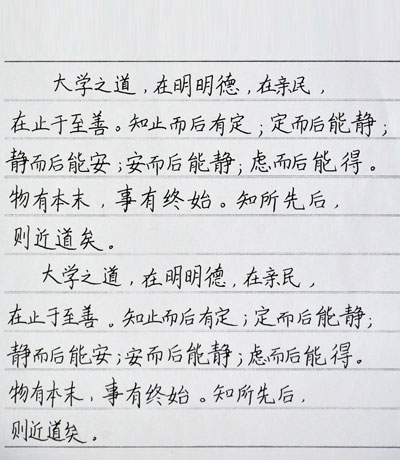 大学之道，在明明德，在亲民，
在止于至善。知止而后有定；定而后能静；
静而后能安；安而后能静；虑而后能得。
物有本末，事有终始。知所先后，
则近道矣。
大学之道，在明明德，在亲民，
在止于至善。知止而后有定；定而后能静；
静而后能安；安而后能静；虑而后能得。
物有本末，事有终始。知所先后，
则近道矣。